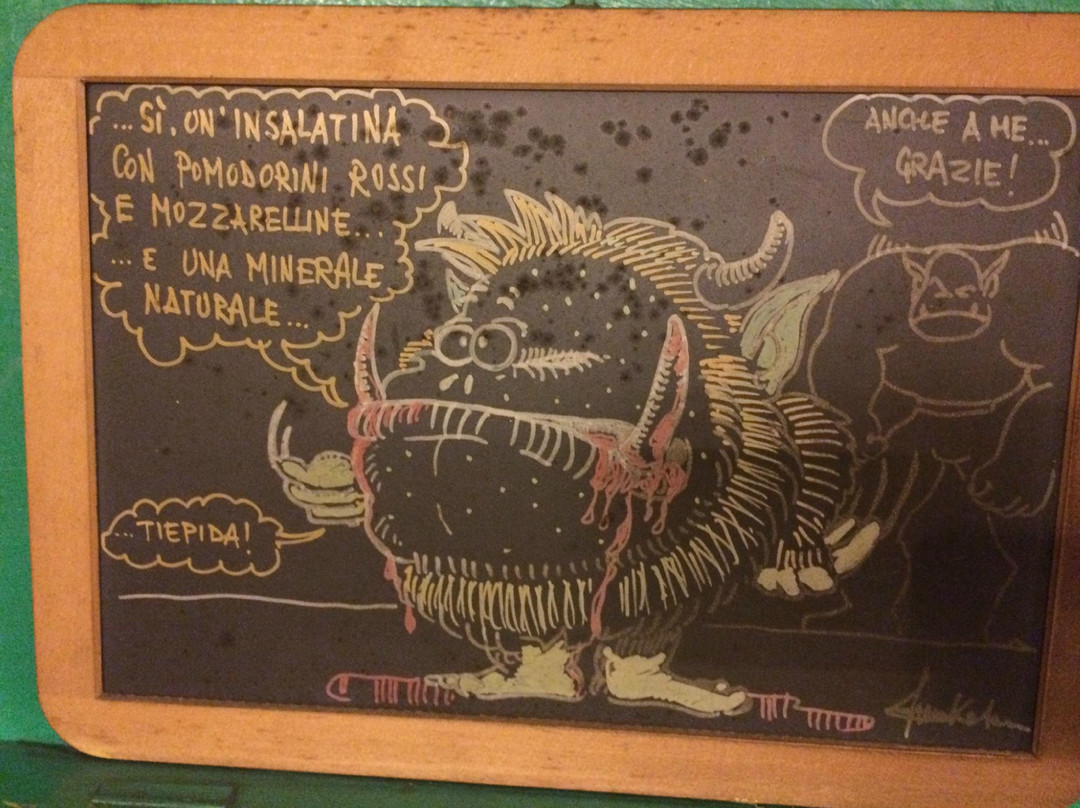 ...SÌ, UN'INSALATINA
CON POMODORINI ROSSI
E MOZZARELLINE...
... E UNA MINERALE
NATURALE...
... TIEPIDA!
ANCHE A ME...
GRAZIE!